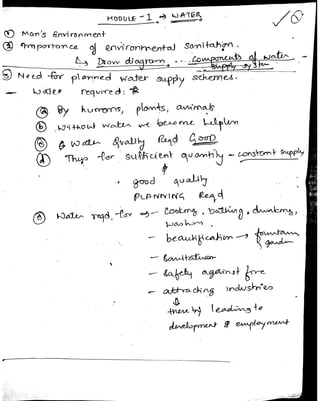 MODULE - I → WATER
① Man's Environment
② Importance of environmental Sanitation.
↳ Draw diagram, ... Components of water supply system
③ Need for planned water supply schemes.
- water required:-
ⓐ By humans, plants, animals
ⓑ Without water we become helpless
ⓒ Water Quality Reqd Good.
ⓓ Thus for sufficient quantity - constant supply
&
good quality
PLANNING Reqd
ⓔ Water reqd. for → - Cooking, bathing, drinking,
washing,
- beautification → fountains,
garden
- Sanitation
- Safety against fire
- attracting industries
⇓
thereby leading to
development & employment